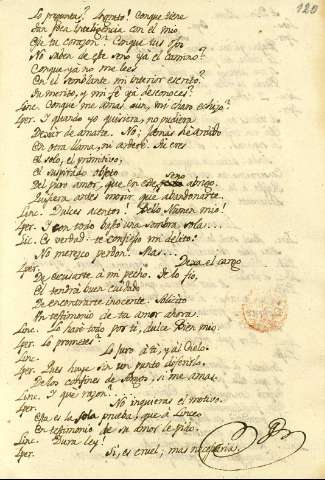 120
Lo preguntas? Ingrato! Conque tiene
tan poca inteligencia con el mio
en tu corazon? Conque tus ojos
No saben de este seno ya el camino?
Conque ya no me lees
En el semblante mi interior escrito?
Tu merito, y mi fé ya desconoces?
Linc. Conque me amas aun, mi caro echizo?
Iper. I quando yo quisiera, no pudiera
Dexar de amarte. No; jamas he ardido
En otra llama, ni arderé. Tu eres
El solo, el primitivo,
el suspirado objeto
Del puro amor, que en este seno abrigo.
Quisiera antes morir que abandonarte.
Linc. Dulces acentos! Bello Numen mio!
Iper. I con todo bastó una sombra sola...
Lic. Es verdad: te confieso mi delito:
No merezco perdon. Mas...
Iper. Dexa el cargo
De escusarte á mi pecho. De lo fio,
El tendrá buen cuidado
De encontrarte inocente. Solicito
Un testimonio de tu amor ahora.
Linc. Lo haré todo por tí, dulce Bien mio.
Iper. Lo prometes?
Linc. Lo juro á tí, y al Cielo.
Iper. Pues huye sin un punto diferirlo
De los confines de Argos, si me amas.
Linc. I que razon?
Iper. No inquieras el motivo.
Esta es la sola prueba, que á Linceo
En testimonio de su amor le pido.
Linc. Dura ley!
Iper. Si, es cruel, mas necesaria.